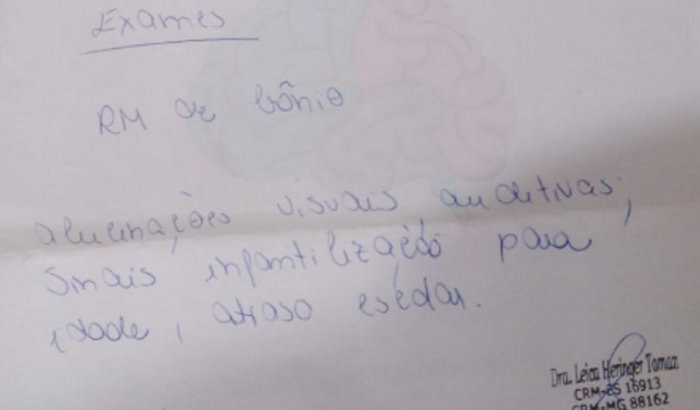 Exames
RM de Crânio
alucinações visuais auditivas,
Sinais infantilização para
idade, atraso escolar.
Dra. Leica Heringer Tomaz
CRM-ES 16913
CRM-MG 88162